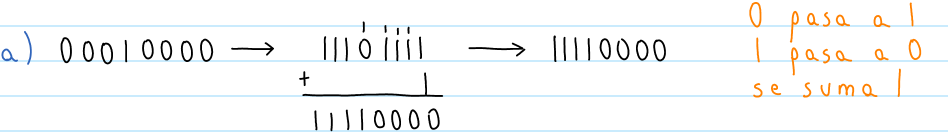 a) 00010000 → 11101111 → 11110000
+ 1
11110000
0 pasa a 1
1 pasa a 0
se suma 1